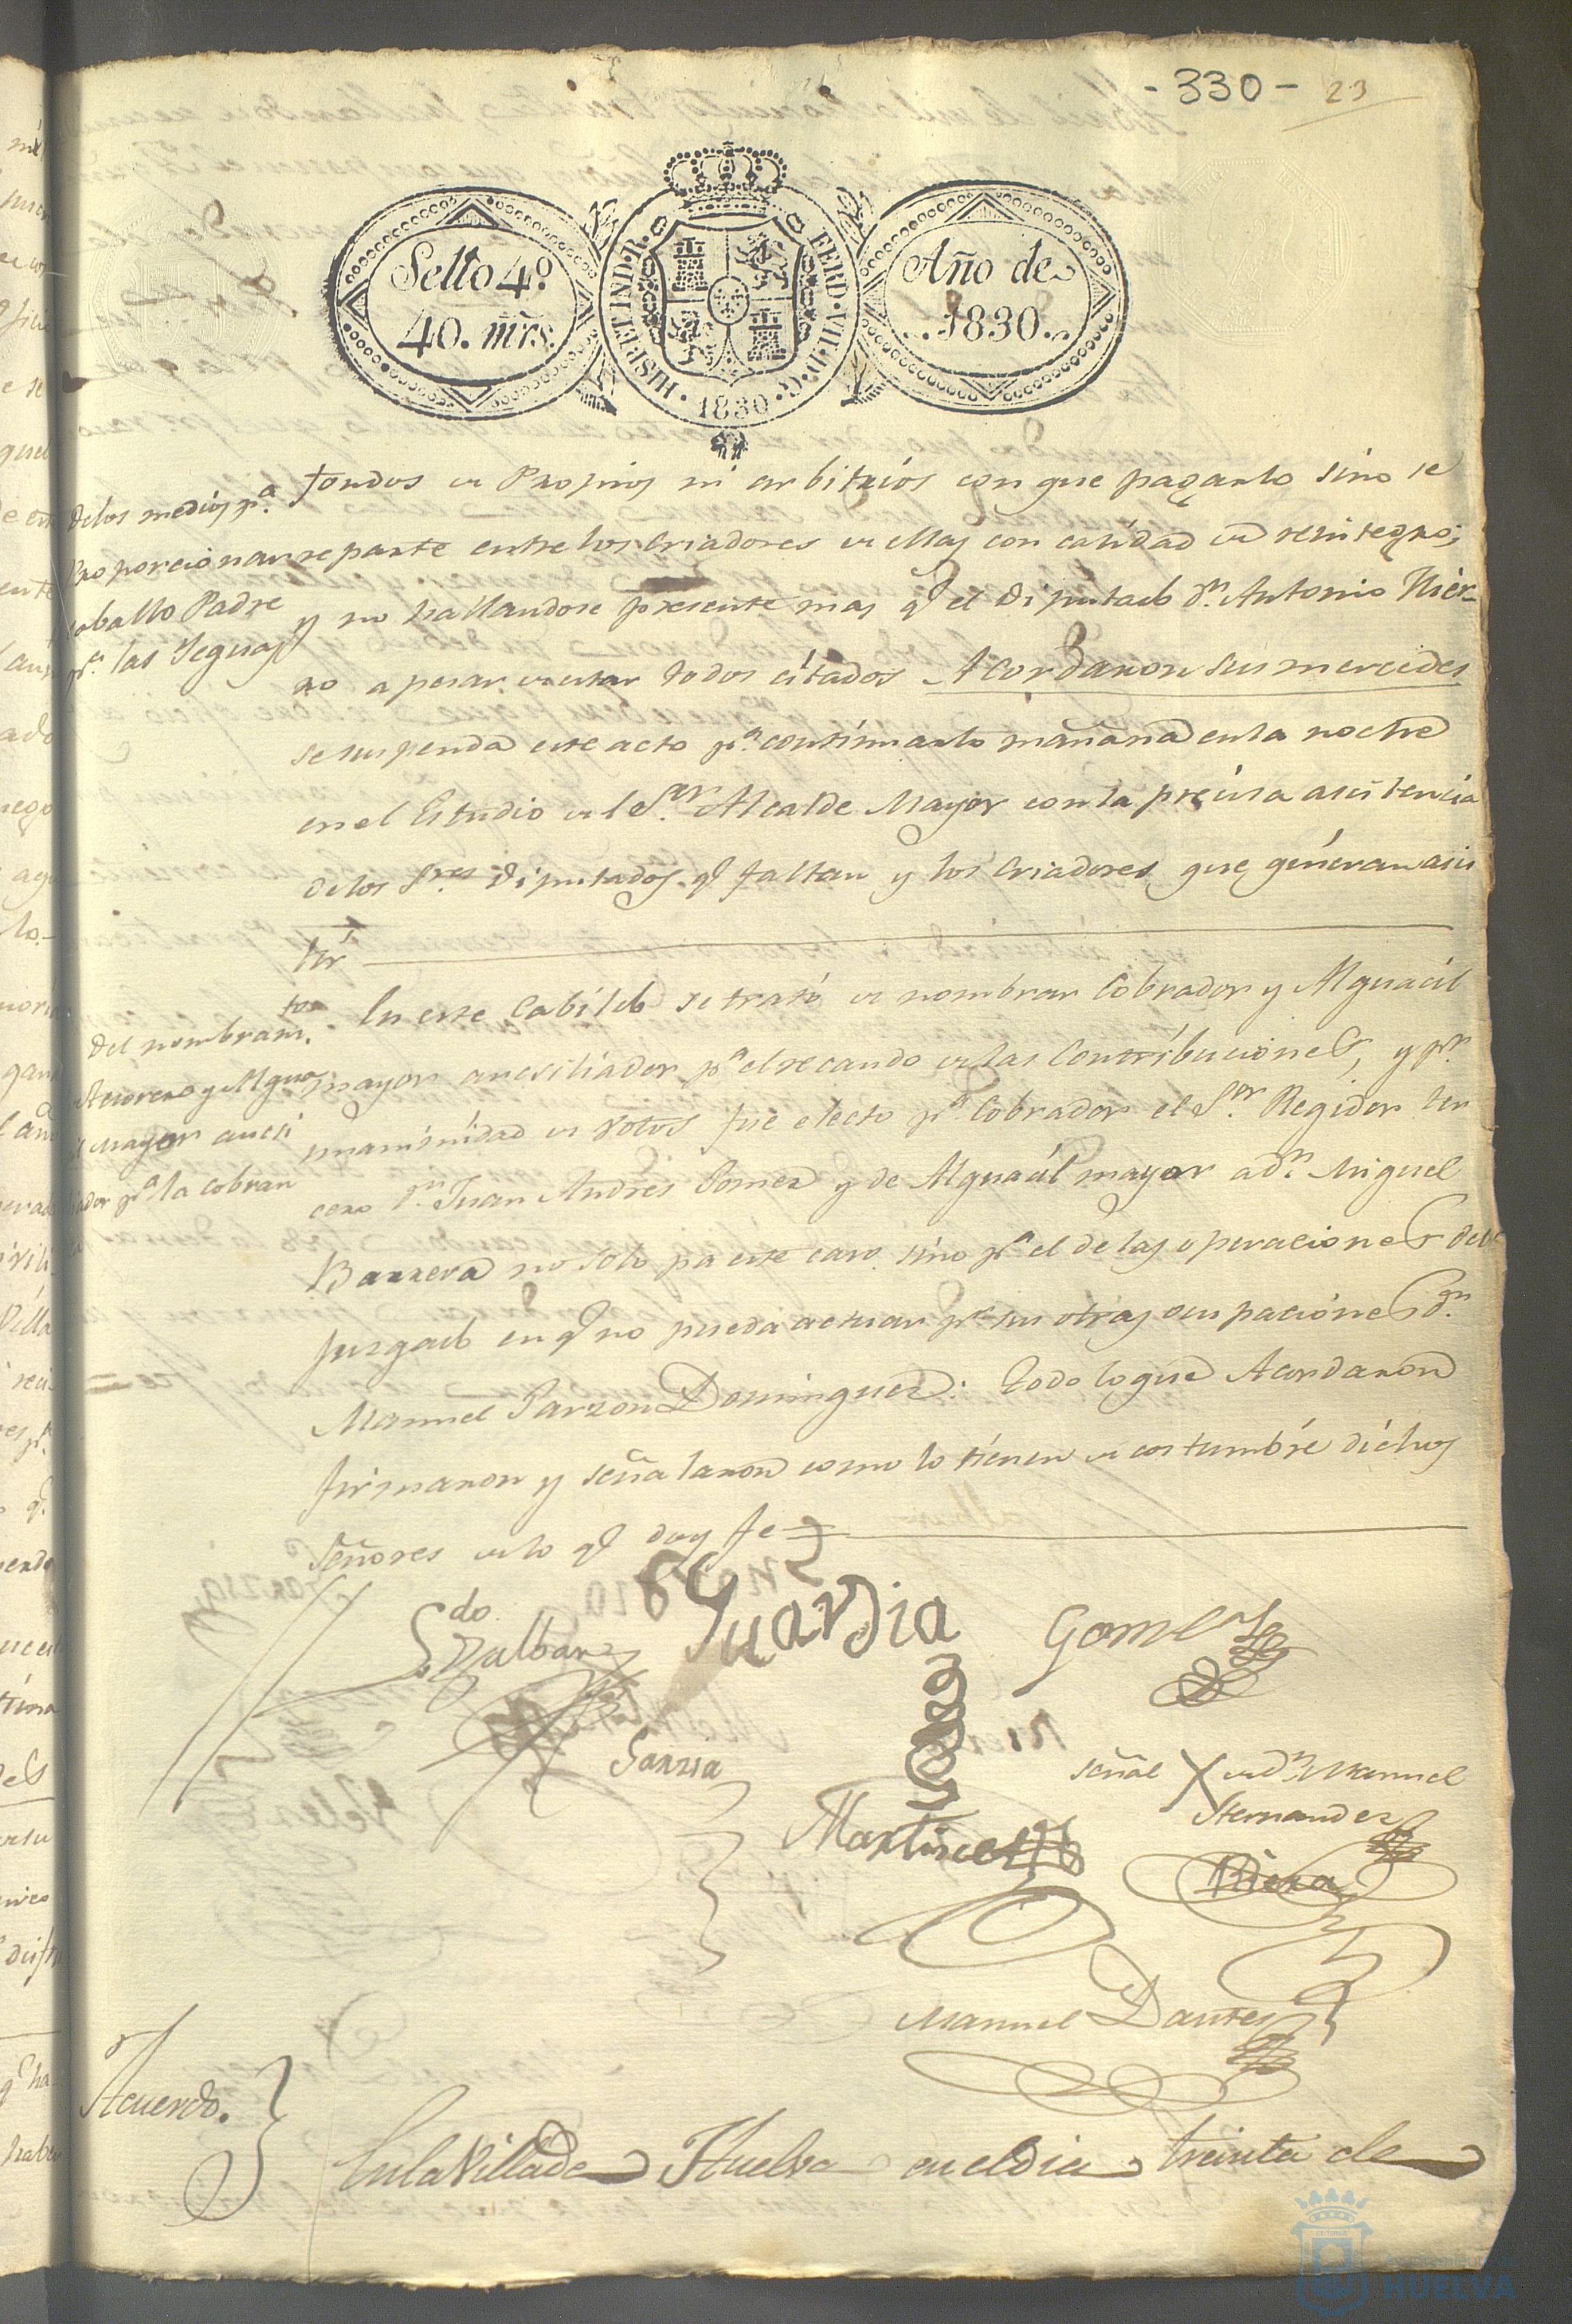 - 330 - 23
Sello 4º.
40. mrs.
HISP. ET IND. R.
FERD. VII. D. G.
1830
Año de
1830.
De los medios pª.
proporcionar
caballo Padre
pª. las Yeguas
fondos de Propios ni arbitrios con que pagarlo sino se
reparte entre los Criadores de ellas con calidad de reintegro;
y no hallandose presente mas qe el Diputado Dn. Antonio Hier-
ro a pesar de estar todos citados Acordaron sus mercedes
se suspenda este acto pª. continuarlo mañana en la noche
en el Estudio del Sor. Alcalde Mayor con la precisa asistencia
de los Sres Diputados qe faltan y los Criadores que quieran asis
tir
Del nombramto.
Tesorero y Alguaz
l mayor ausi
liador pª la cobran
En este Cabildo se trató de nombrar Cobrador y Alguacil
mayor aucsiliador pª el recaudo de las Contribuciones, y pr.
unanimidad de votos fue electo pª Cobrador el Sor. Regidor ter
cero Dn. Juan Andres Gomez y de Alguacil mayor a Dn. Miguel
Barrera no solo pa este caso sino pª el de las operaciones del
juzgado en qe no pueda actuar pr sus otras ocupaciones Dn.
Manuel Garzon Dominguez: Todo lo que Acordaron
firmaron y señalaron como lo tienen de costumbre dichos
Señores de lo qe doy fe
Ldo.
Zalbar
Guardia
Gomez
Garzia
Martinez
señal X de Dn Manuel
Hernandez
Riera
Manuel Dantes
Acuerdo.
En la Villa de Huelva en el dia treinta de
HUELVA